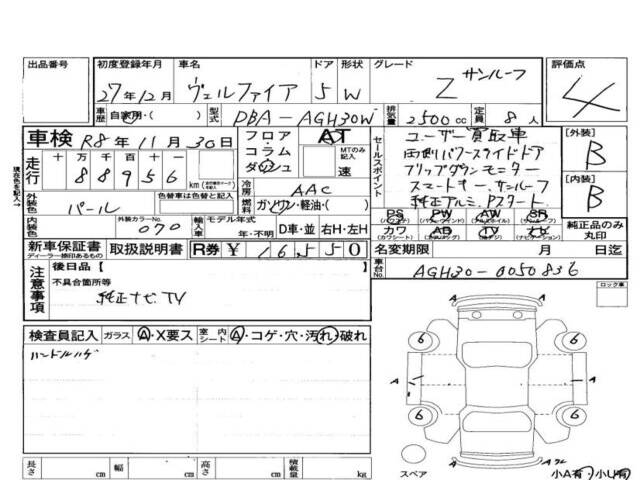 出品番号 初度登録年月 車名 ドア 形状 グレード 評価点
27年12月 ヴェルファイア 5 W Z サンルーフ 4
車歴 自家用・( ) 型式 DBA-AGH30W 排気量 2500cc 定員 8人
車検 R8年11月30日 フロア・コラム・ダッシュ AT MTのみ記入 速
セールスポイント ユーザー買取車
両側パワースライドドア
フリップダウンモニター
スマートキー、サンルーフ
純正アルミ、Pスタート
[外装] B
[内装] B
現在色を記入→
走行 十万 万 千 百 十 一
88956 km
冷房 AAC
外装色 パール 色替車は色替と記入 燃料 ガソリン・軽油・( )
PS PW AW SR
カワ AB TV ナビ
(カワシート) (エアバッグ) (テレビ) (ナビゲーション)
純正品のみ丸印
内装色 外装カラーNo. 070 輸入車 モデル年式 年・不明 D車・並 右H・左H
新車保証書 ディーラー捺印あるもの 取扱説明書 R券 ¥16,550
名変期限 月 日迄
車台No. AGH30-0050836
注意事項 後日品【 】
不具合箇所等
純正ナビ、TV
ロック車
検査員記入 ガラス A・X要ス 室内シート A・コゲ・穴・汚れ・破れ
ハンドルハゲ
A
6 6
A A
6 6
A
スペア
小A有・小U有
長さ cm 幅 cm 高さ cm 積載量 kg